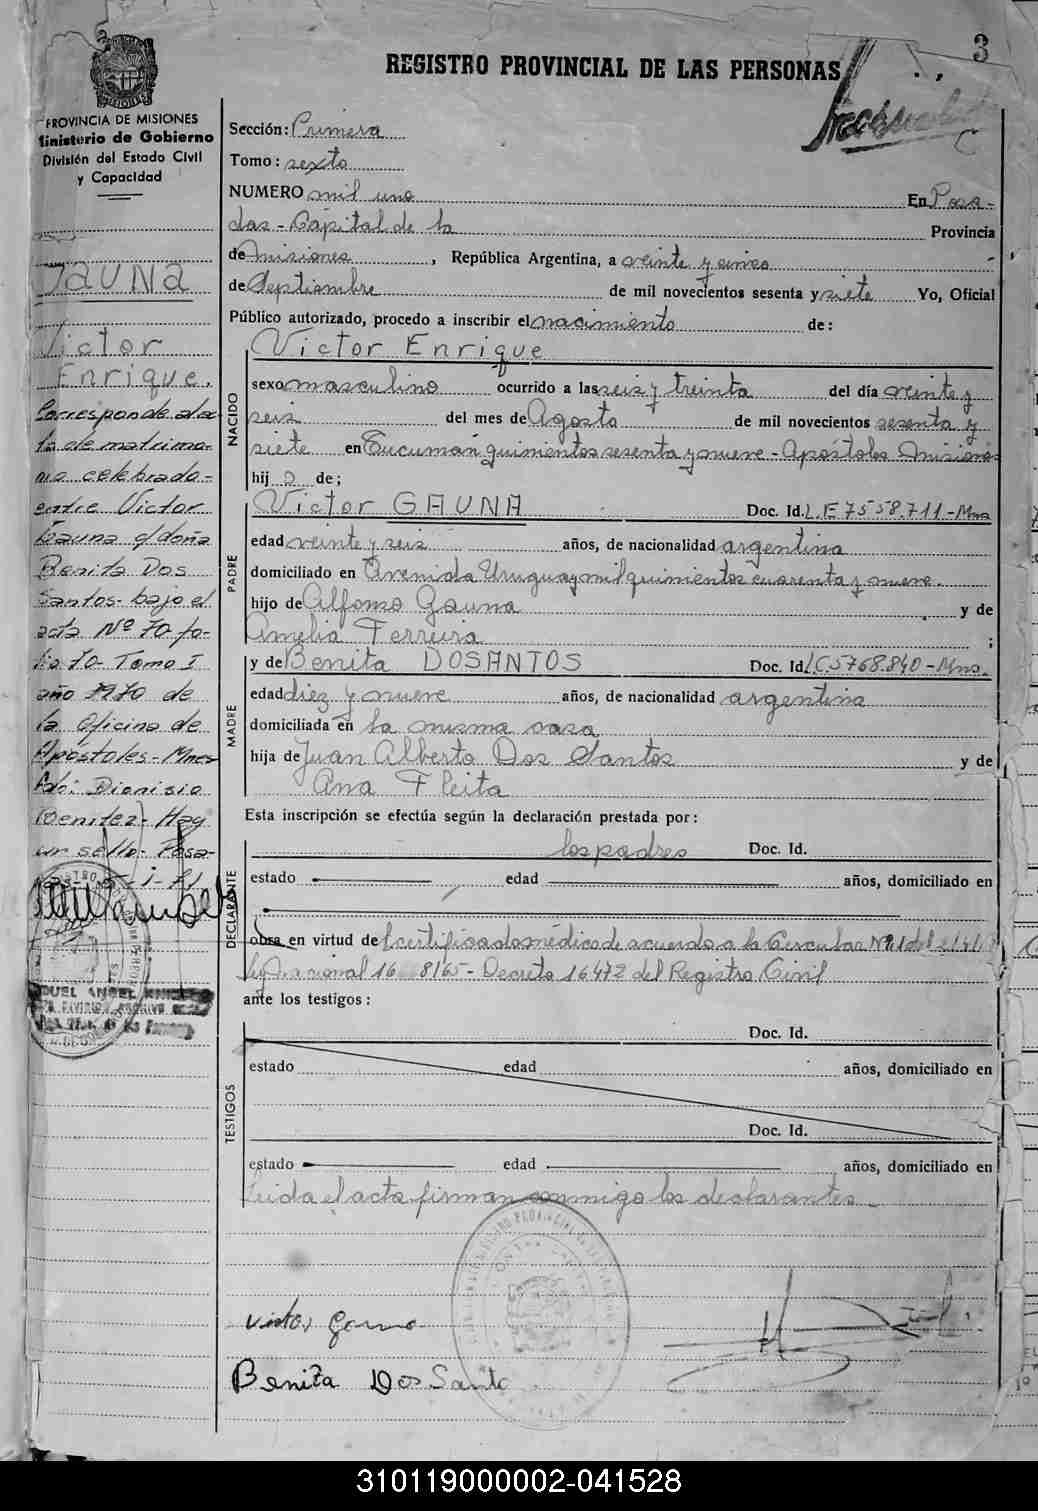 3
REGISTRO PROVINCIAL DE LAS PERSONAS
PROVINCIA DE MISIONES
Ministerio de Gobierno
División del Estado Civil
y Capacidad
GAUNA
Victor
Enrique.
Corresponde
de matrimo-
nio celebrado-
entre Victor
Gauna c/doña
Benita Dos
Santos- bajo el
acta Nº 70 fo-
lio 70- Tomo I
año 1970 de
la Oficina de
Apóstoles- Mnes
Fdo: Dionisio
Benitez- Hay
un sello- Posa-
Sección: Primera
Tomo: sexto
NUMERO mil uno En Posa-
das- Capital de la Provincia
de Misiones, República Argentina, a veinte y cinco
de Septiembre de mil novecientos sesenta y siete Yo, Oficial
Público autorizado, procedo a inscribir el nacimiento de:
NACIDO
Victor Enrique
sexo masculino ocurrido a las seis y treinta del día veinte y
seis del mes de Agosto de mil novecientos sesenta y
siete en Tucumán quinientos sesenta y nueve - Apóstoles Misiones
hij o de;
PADRE
Victor GAUNA Doc. Id. L.E 7558.711-Mns
edad veinte y seis años, de nacionalidad argentina
domiciliado en Avenida Uruguay mil quinientos cuarenta y nueve.
hijo de Alfonso Gauna y de
Amelia Ferreira ;
MADRE
y de Benita DOSANTOS Doc. Id. L.C5768.840-Mns.
edad diez y nueve años, de nacionalidad argentina
domiciliada en la misma casa
hija de Juan Alberto Dos Santos y de
Ana Fleita
Esta inscripción se efectúa según la declaración prestada por:
DECLARANTE
los padres Doc. Id.
estado edad años, domiciliado en
obra en virtud del certificado médico de acuerdo a la Circular Nº
Ley Nacional 16 8/65- Decreto 16472 del Registro Civil
ante los testigos:
TESTIGOS
Doc. Id.
estado edad años, domiciliado en
Doc. Id.
estado edad años, domiciliado en
Leida el acta firman conmigo los declarantes
Victor Gauna
Benita Dos Santo
310119000002-041528